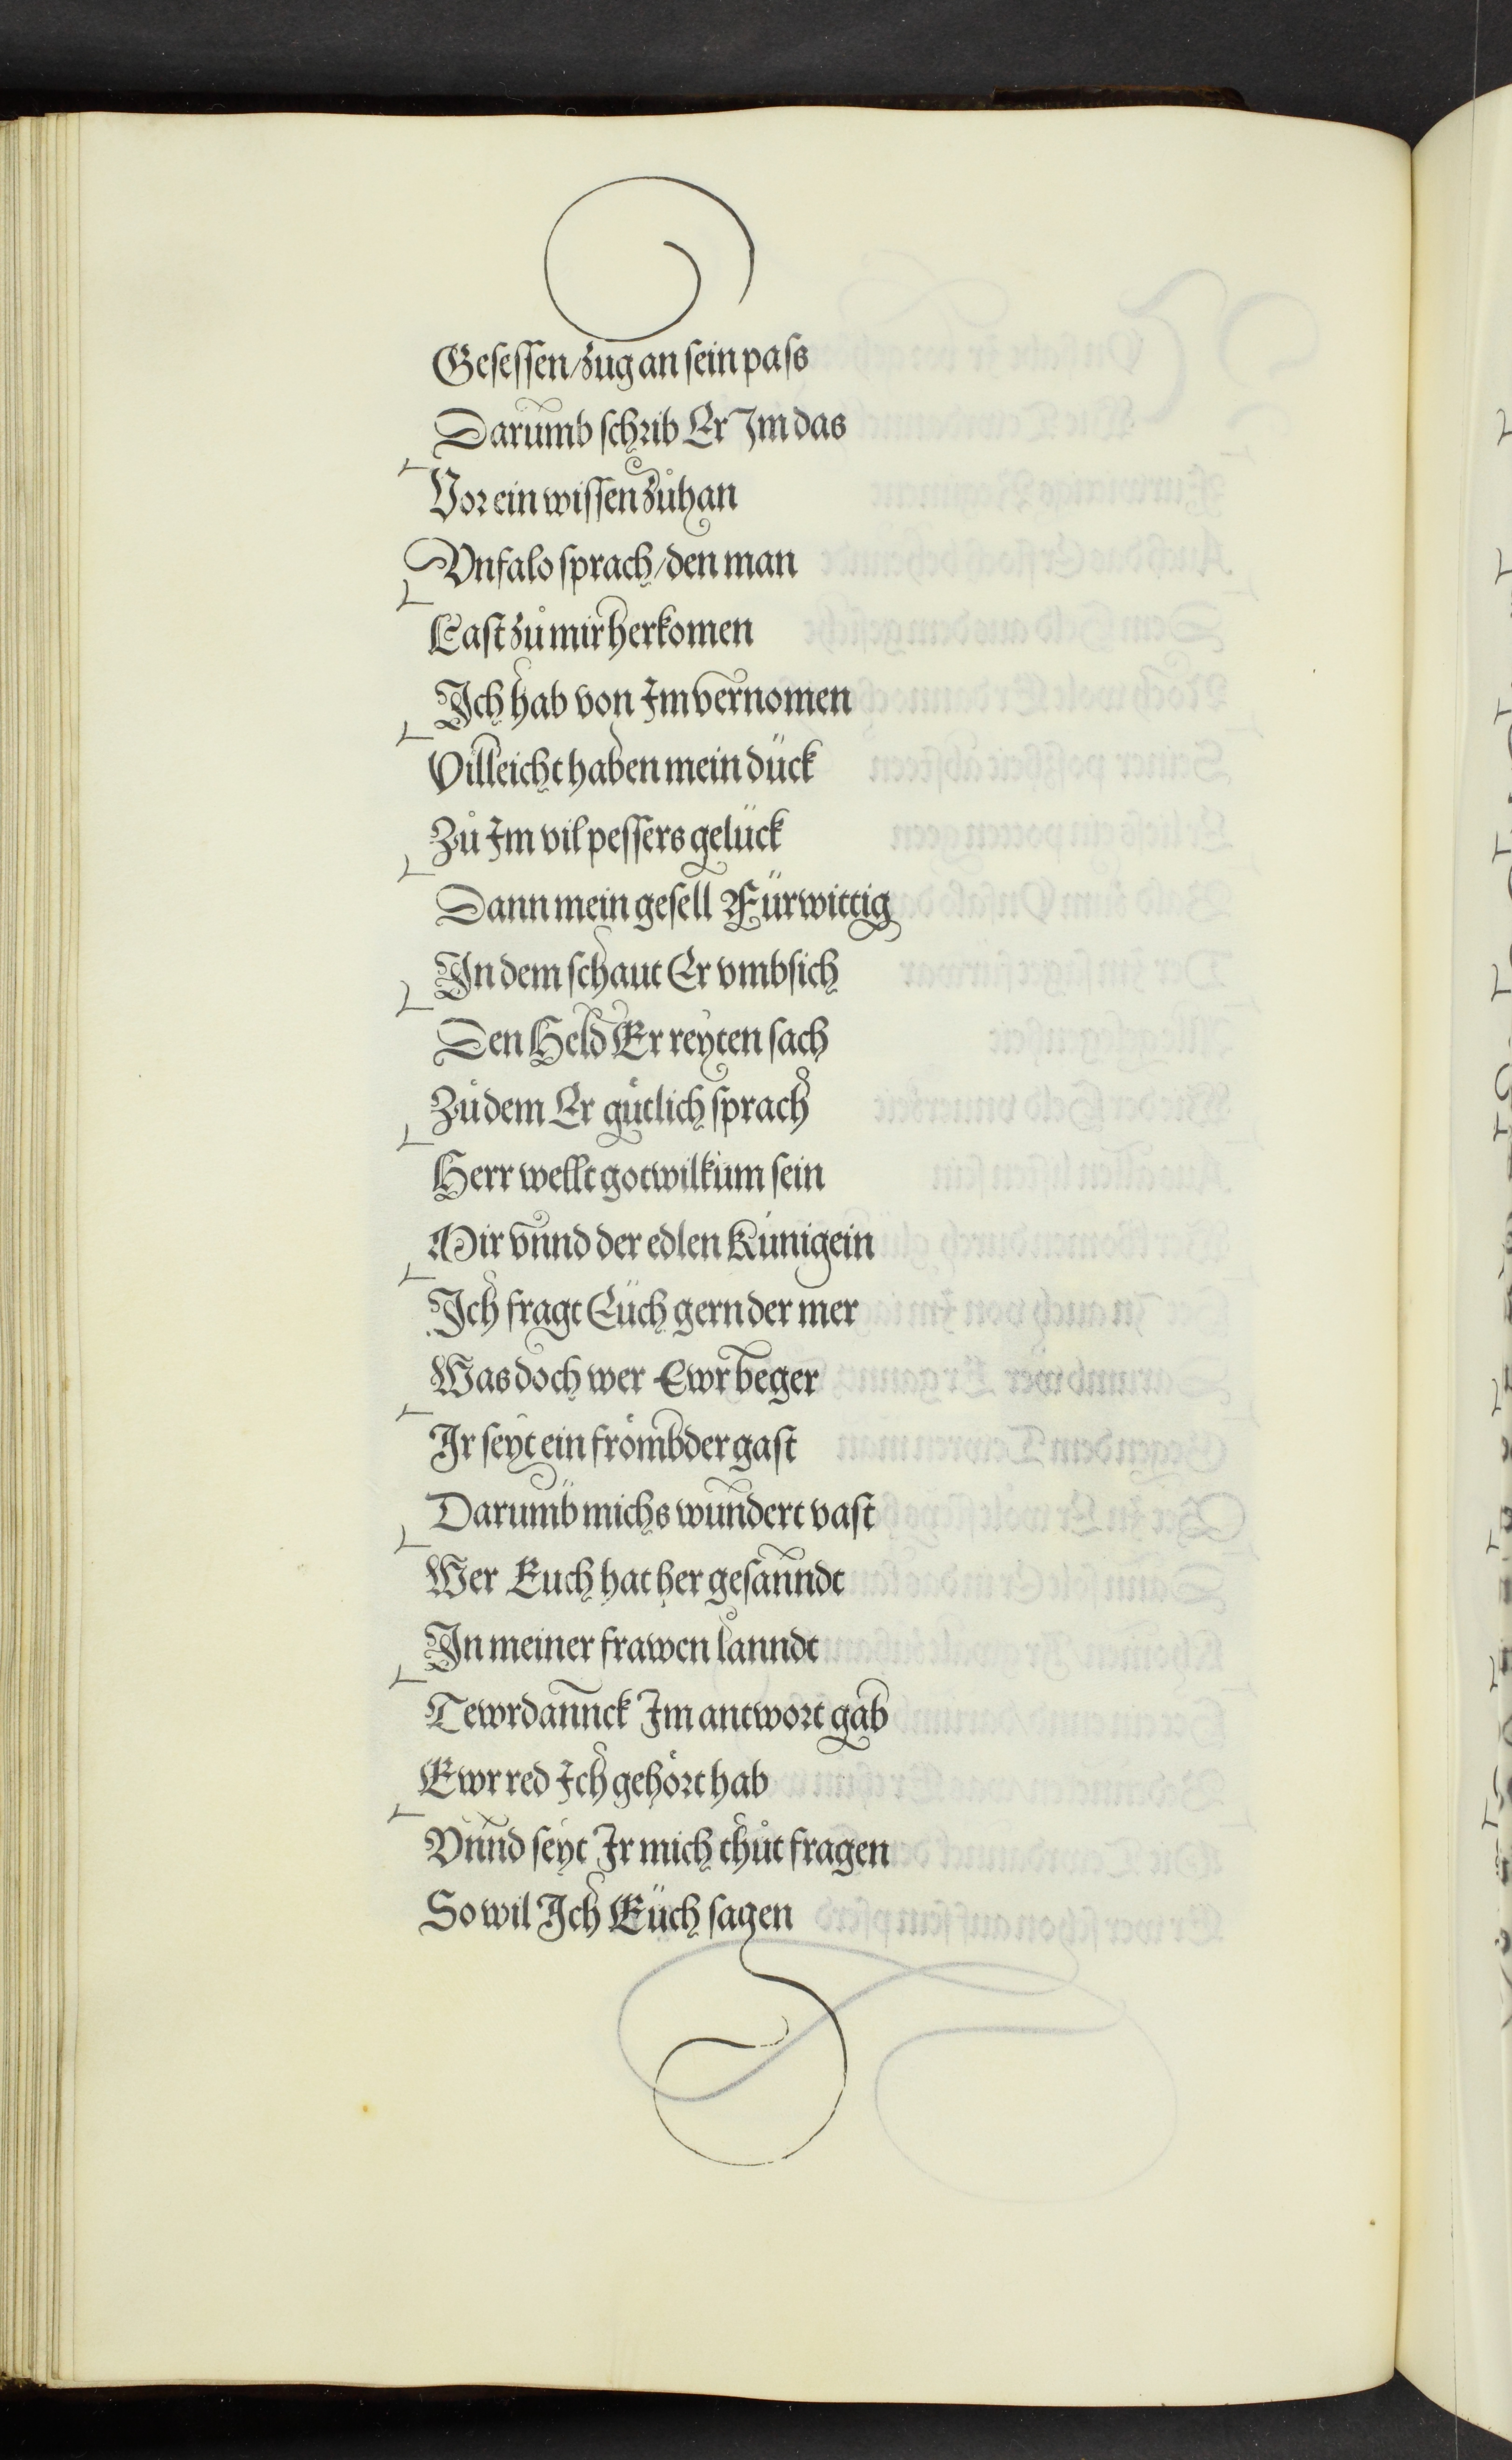 Gesessen/zug an sein pass
Darumb schrib Er Im das
Vor ein wissen zuͦhan
Vnfalo sprach/den man
Last zuͦ mir herkomen
Ich hab von Im vernomen
Villeicht haben mein dück
Zuͦ Im vil pessers gelück
Dann mein gesell Fürwittig
In dem schaut Er vmbsich
Den Held Er reyten sach
Zuͦ dem Er guͤtlich sprach
Herr wellt gotwilkum sein
Mir vnnd der edlen Künigein
Ich fragt Eüch gern der mer
Was doch wer Ewr beger
Ir seyt ein froͤmbder gast
Darumb michs wundert vast
Wer Euch hat her gesanndt
In meiner frawen lanndt
Tewrdannck Im antwort gab
Ewr red Ich gehoͤrt hab
Vnnd seyt Ir mich thuͦt fragen
So wil Ich Eüch sagen